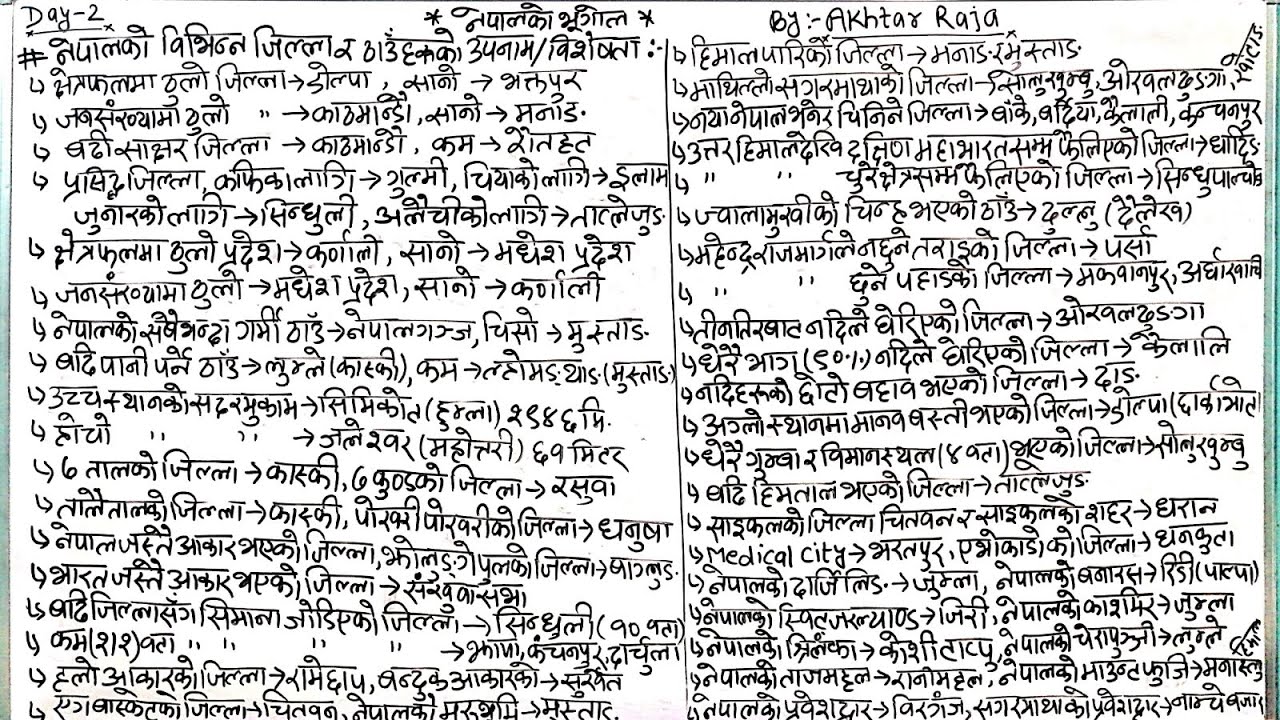 Day-2
* नेपालको भूगोल *
By:- Akhtar Raja
# नेपालको विभिन्न जिल्ला र ठाउँहरुको उपनाम/विशेषता :-
↳ क्षेत्रफलमा ठुलो जिल्ला → डोल्पा, सानो → भक्तपुर
↳ जनसंख्यामा ठुलो " → काठमान्डौ, सानो → मनाङ.
↳ बढी साक्षर जिल्ला → काठमान्डौ, कम → रौतहत
↳ प्रसिद्ध जिल्ला, कफिका लागि → गुल्मी, चियाको लागि → इलाम
जुनारको लागि → सिन्धुली, अलैचीको लागि → ताप्लेजुङ.
↳ क्षेत्रफलमा ठुलो प्रदेश → कर्णाली, सानो → मधेश प्रदेश
↳ जनसंख्यामा ठुलो → मधेश प्रदेश, सानो → कर्णाली
↳ नेपालको सबैभन्दा गर्मी ठाउँ → नेपालगञ्ज, चिसो → मुस्ताङ.
↳ बढि पानी पर्ने ठाउँ → लुम्ले (कास्की), कम → ल्होमङ्थाङ. (मुस्ताङ)
↳ उच्च स्थानको सदरमुकाम → सिमिकोत (हुम्ला) २९४६ मि.
↳ होचो " " → जलेश्वर (महोत्तरी) ६१ मिटर
↳ ७ तालको जिल्ला → कास्की, ७ कुण्डको जिल्ला → रसुवा
↳ तालैतालको जिल्ला → कास्की, पोखरी पोखरीको जिल्ला → धनुषा
↳ नेपाल जस्तै आकार भएको जिल्ला, झोलङ्गे पुलको जिल्ला → बाग्लुङ.
↳ भारत जस्तै आकार भएको जिल्ला → संखुवासभा
↳ बढि जिल्लासँग सिमाना जोडिएको जिल्ला → सिन्धुली (१० वता)
↳ कम (२/२) वता " " " " → झापा, कंचनपुर, दार्चुला
↳ हलो आकारको जिल्ला → रामेछाप, बन्दुक आकारको → सुर्खेत
↳ एग बास्केटको जिल्ला → चितवन, नेपालको मरुभूमि → मुस्ताङ.
↳ हिमाल पारिको जिल्ला → मनाङ र मुस्ताङ
↳ माथिल्लो सगरमाथाको जिल्ला → सोलुखुम्बु, ओखलढुङगा, खोटाङ
↳ नया नेपाल भनेर चिनिने जिल्ला → बाँके, बर्दिया, कैलाली, कन्चनपुर
↳ उत्तर हिमालदेखि दक्षिण महाभारतसम्म फैलिएको जिल्ला → धादिङ
↳ " " चुरे क्षेत्रसम्म फैलिएको जिल्ला → सिन्धुपाल्चोक
↳ ज्वालामुखीको चिन्ह भएको ठाउँ → दुल्लु (दैलेख)
↳ महेन्द्र राजमार्गले नछुने तराइको जिल्ला → पर्सा
↳ " " छुने पहाडको जिल्ला → मकवानपुर, अर्घाखाँची
↳ तीनतिरबाट नदिले घेरिएको जिल्ला → ओखलढुङगा
↳ धेरै भाग (९०%) नदिले घेरिएको जिल्ला → कैलालि
↳ नदिहरुको छोटो बहाव भएको जिल्ला → दाङ.
↳ अग्लो स्थानमा मानव बस्ती भएको जिल्ला → डोल्पा
↳ धेरै गुम्बा र विमानस्थल (४ वता) भएको जिल्ला → सोलुखुम्बु
↳ बढि हिमताल भएको जिल्ला → ताप्लेजुङ.
↳ साइकलको जिल्ला चितवन र साइकलको शहर → धरान
↳ Medical City → भरतपुर, एभोकाडो को जिल्ला → धनकुता
↳ नेपालको दार्जिलिङ. → जुम्ला, नेपालको बनारस → रिडी (पाल्पा)
↳ नेपालको स्वित्जरल्याण्ड → जिरी, नेपालको काश्मिर → जुम्ला
↳ नेपालको श्रिलंका → कोशी ताप्पु, नेपालको चेरापुञ्जी → लुम्ले
↳ नेपालको ताजमहल → रानीमहल, नेपालको माउन्ट फुजि → मनास्लु
↳ नेपालको प्रवेशद्वार → विरगंज, सगरमाथाको प्रवेशद्वार → नाम्चे बजार